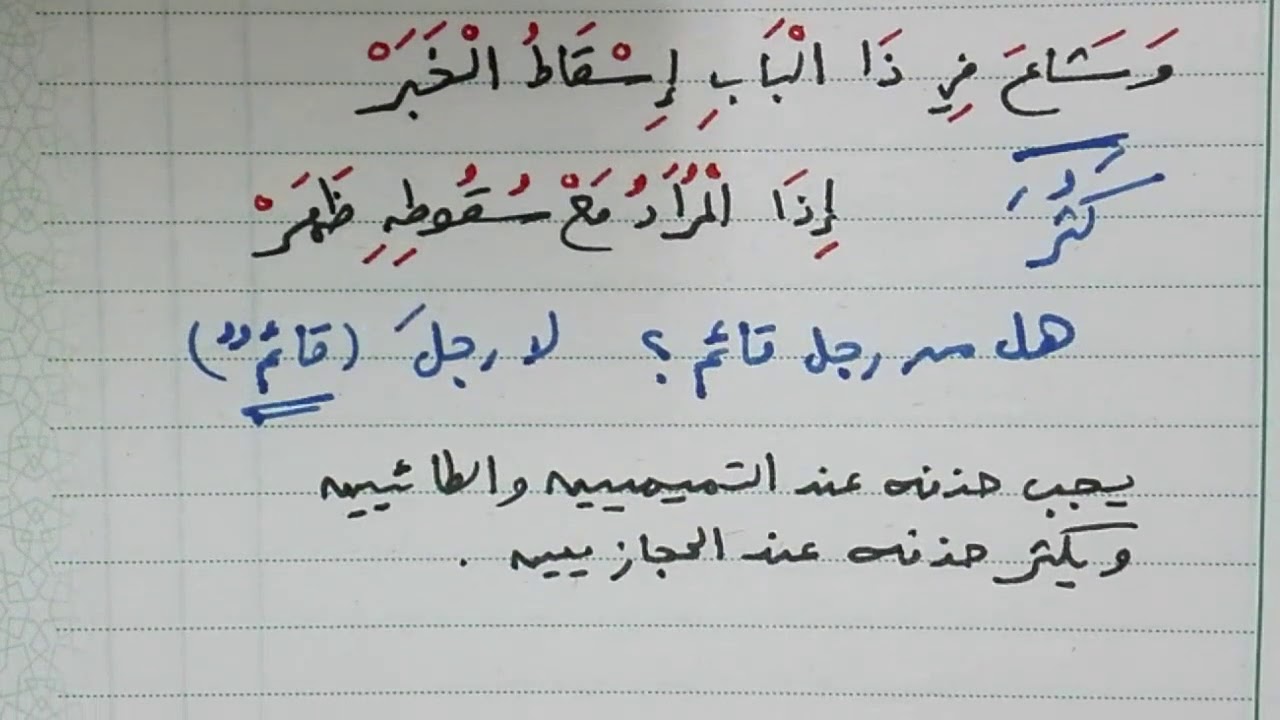 وَشَاعَ فِي ذَا الْبَابِ إِسْقَاطُ الْخَبَرْ
إِذَا الْمُرَادُ مَعْ سُقُوطِهِ ظَهَرْ
كَثُرَ
هل من رجل قائم ؟ لا رجلَ (قائمٌ)
يجب حذفه عند التميميين والطائيين
ويكثر حذفه عند الحجازيين .